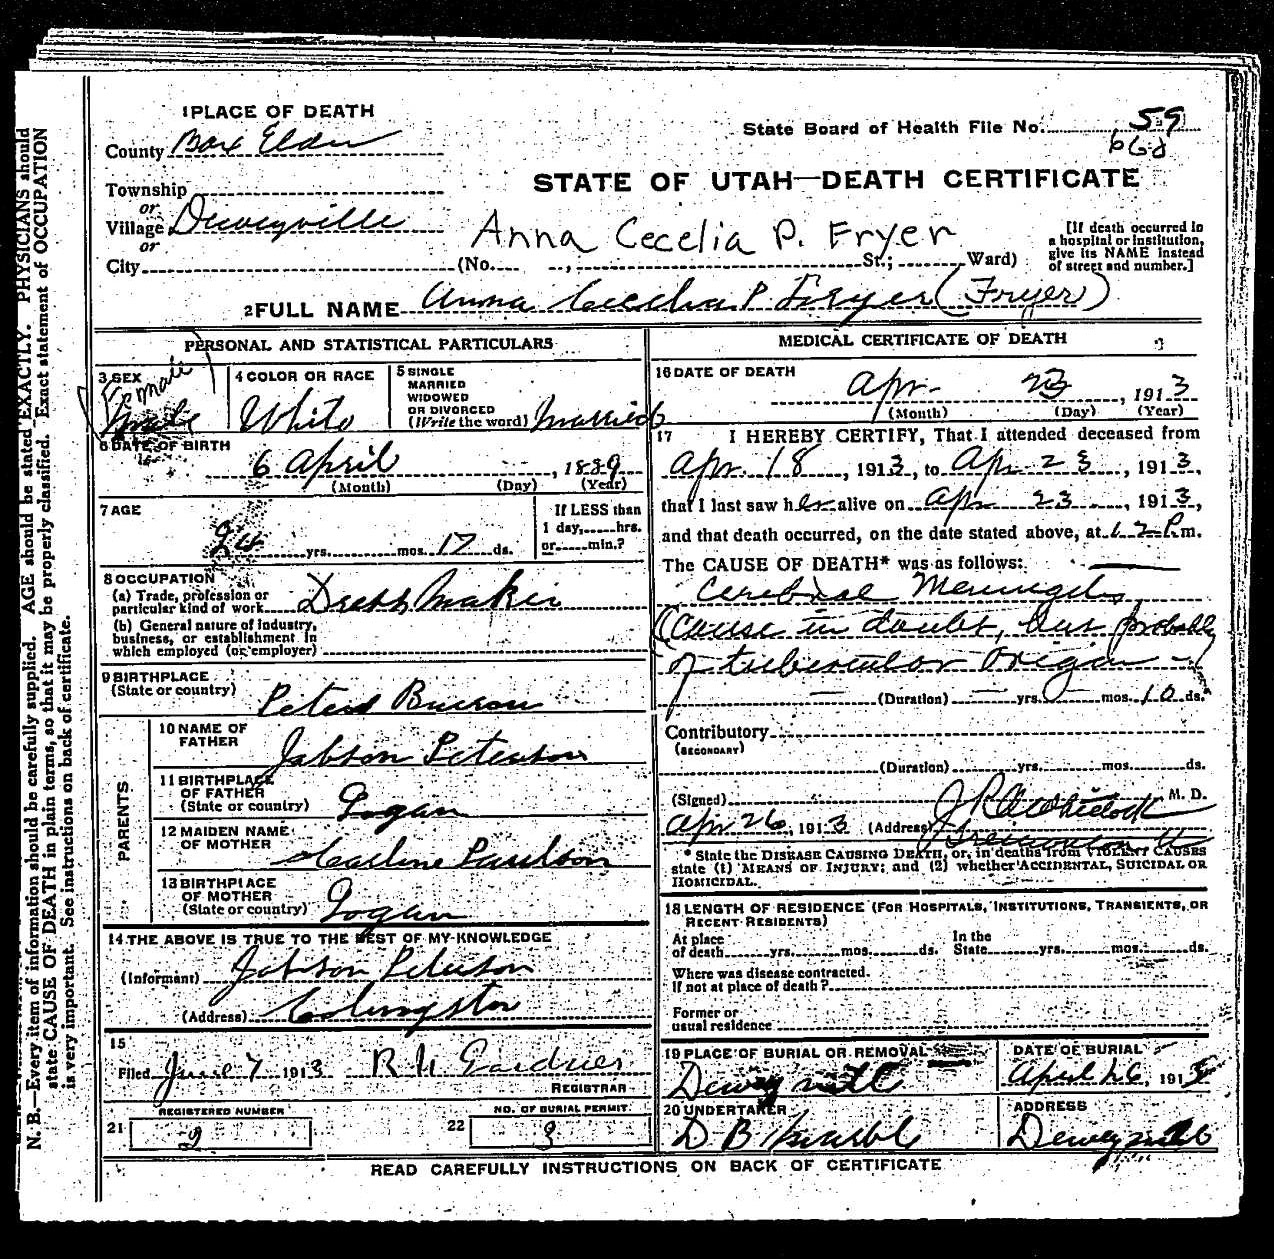 1 PLACE OF DEATH
County Box Elder
State Board of Health File No. 59
668
STATE OF UTAH—DEATH CERTIFICATE
Township
or
Village Deweyville
or
City (No. , St.; Ward)
Anna Cecelia P. Fryer
[If death occurred in
a hospital or institution,
give its NAME instead
of street and number.]
2 FULL NAME Anna Cecelia P Fryer (Fryer)
PERSONAL AND STATISTICAL PARTICULARS
3 SEX
Female
4 COLOR OR RACE
White
5 SINGLE
MARRIED
WIDOWED
OR DIVORCED
(Write the word) Married
6 DATE OF BIRTH
6 April , 1889
(Month) (Day) (Year)
7 AGE
24 yrs. mos. 17 ds.
If LESS than
1 day, hrs.
or min.?
8 OCCUPATION
(a) Trade, profession or
particular kind of work Dress Maker
(b) General nature of industry,
business, or establishment in
which employed (or employer)
9 BIRTHPLACE
(State or country)
PARENTS
10 NAME OF
FATHER
Peterson
11 BIRTHPLACE
OF FATHER
(State or country) Logan
12 MAIDEN NAME
OF MOTHER
13 BIRTHPLACE
OF MOTHER
(State or country) Logan
14 THE ABOVE IS TRUE TO THE BEST OF MY KNOWLEDGE
(Informant) Peterson
(Address)
15
Filed June 7 1913 R H Gardner
REGISTRAR
REGISTERED NUMBER
21 2
NO. OF BURIAL PERMIT
22 3
MEDICAL CERTIFICATE OF DEATH
16 DATE OF DEATH
Apr. 23, 1913
(Month) (Day) (Year)
17 I HEREBY CERTIFY, That I attended deceased from
Apr. 18, 1913, to Apr 23, 1913,
that I last saw her alive on Apr 23, 1913,
and that death occurred, on the date stated above, at 12 P.m.
The CAUSE OF DEATH* was as follows:
Cerebral Meningitis
(Cause in doubt, but probably
of tubercular origin)
(Duration) yrs. mos. 10 ds.
Contributory
(SECONDARY)
(Duration) yrs. mos. ds.
(Signed) M. D.
Apr 26, 1913 (Address) Tremonton
* State the DISEASE CAUSING DEATH, or, in deaths from VIOLENT CAUSES
state (1) MEANS OF INJURY; and (2) whether ACCIDENTAL, SUICIDAL OR
HOMICIDAL.
18 LENGTH OF RESIDENCE (FOR HOSPITALS, INSTITUTIONS, TRANSIENTS, OR
RECENT RESIDENTS)
At place
of death yrs. mos. ds.
In the
State yrs. mos. ds.
Where was disease contracted.
if not at place of death?
Former or
usual residence
19 PLACE OF BURIAL OR REMOVAL
Deweyville
DATE OF BURIAL
April 26, 1913
20 UNDERTAKER
D B Marble
ADDRESS
Deweyville
READ CAREFULLY INSTRUCTIONS ON BACK OF CERTIFICATE
N. B.—Every item of information should be carefully supplied. AGE should be stated EXACTLY. PHYSICIANS should
state CAUSE OF DEATH in plain terms, so that it may be properly classified. Exact statement of OCCUPATION
is very important. See instructions on back of certificate.